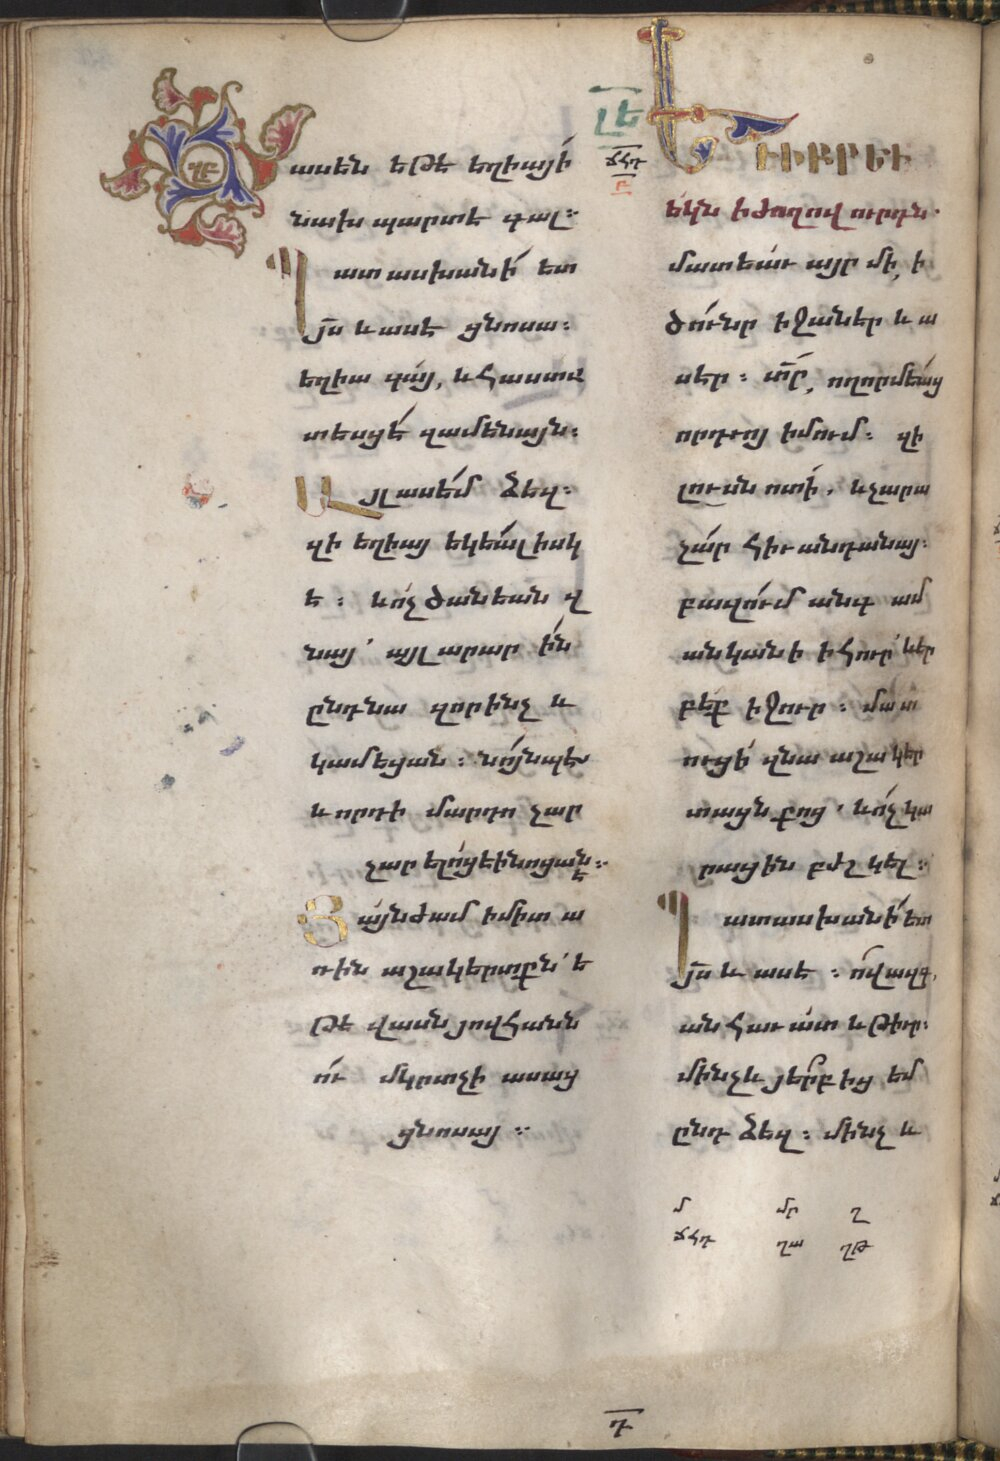 ՂԲ
ասեն եթե եղիայի՛
նախ պարտե գալ։
Պատասխանի՛ ետ
յս և ասե ցնոսա։
եղիա գա՛յ, և հաստա
տեսցե՛ զամենայն։
Այլ ասե՛մ ձեզ։
զի եղիայ եկեա՛լ իսկ
է։ և ո՛չ ծանեան զ
նայ՝ այլ արար ին
ընդ նա զոր ինչ և
կամեցան։ նո՛յնպես
և որդի մարդո չար
չարելո՛ց է ի նոցանէ։
Յա՛յնժամ ի միտ ա
ռին աշակերտքն՝ ե
թե վասն յովհանն
ու մկրտչի ասաց
ցնոսայ։
ԼԵ
ՃՀԴ
Բ
Եւ իբրեւ
եկն ի ժողովուրդն.
մատեա՛ւ այր մի, ի
ծո՛ւնր իջանէր և ա
սեր։ տր, ողորմեա՛ց
որդւոյ իմում։ զի
լուսնոտի. և չարա
չա՛ր հիւանդանայ։
բազո՛ւմ անգ ամ
անկանի ի հուր՝ և եր
բե՛ք ի ջուր։ մատ
ուցի՛ զնա աշակեր
տացն քոց, և ո՛չ կա
րացին բժշկել։
Պատասխանի՛ ետ
յս և ասե։ ո՛վ ազգ,
անհաւա՛տ և թիւր։
մինչև յե՛րբ ից եմ
ընդ ձեզ։ մինչ և
մ մր ղ
ՃՀԴ ՂԱ ՂԹ
Դ